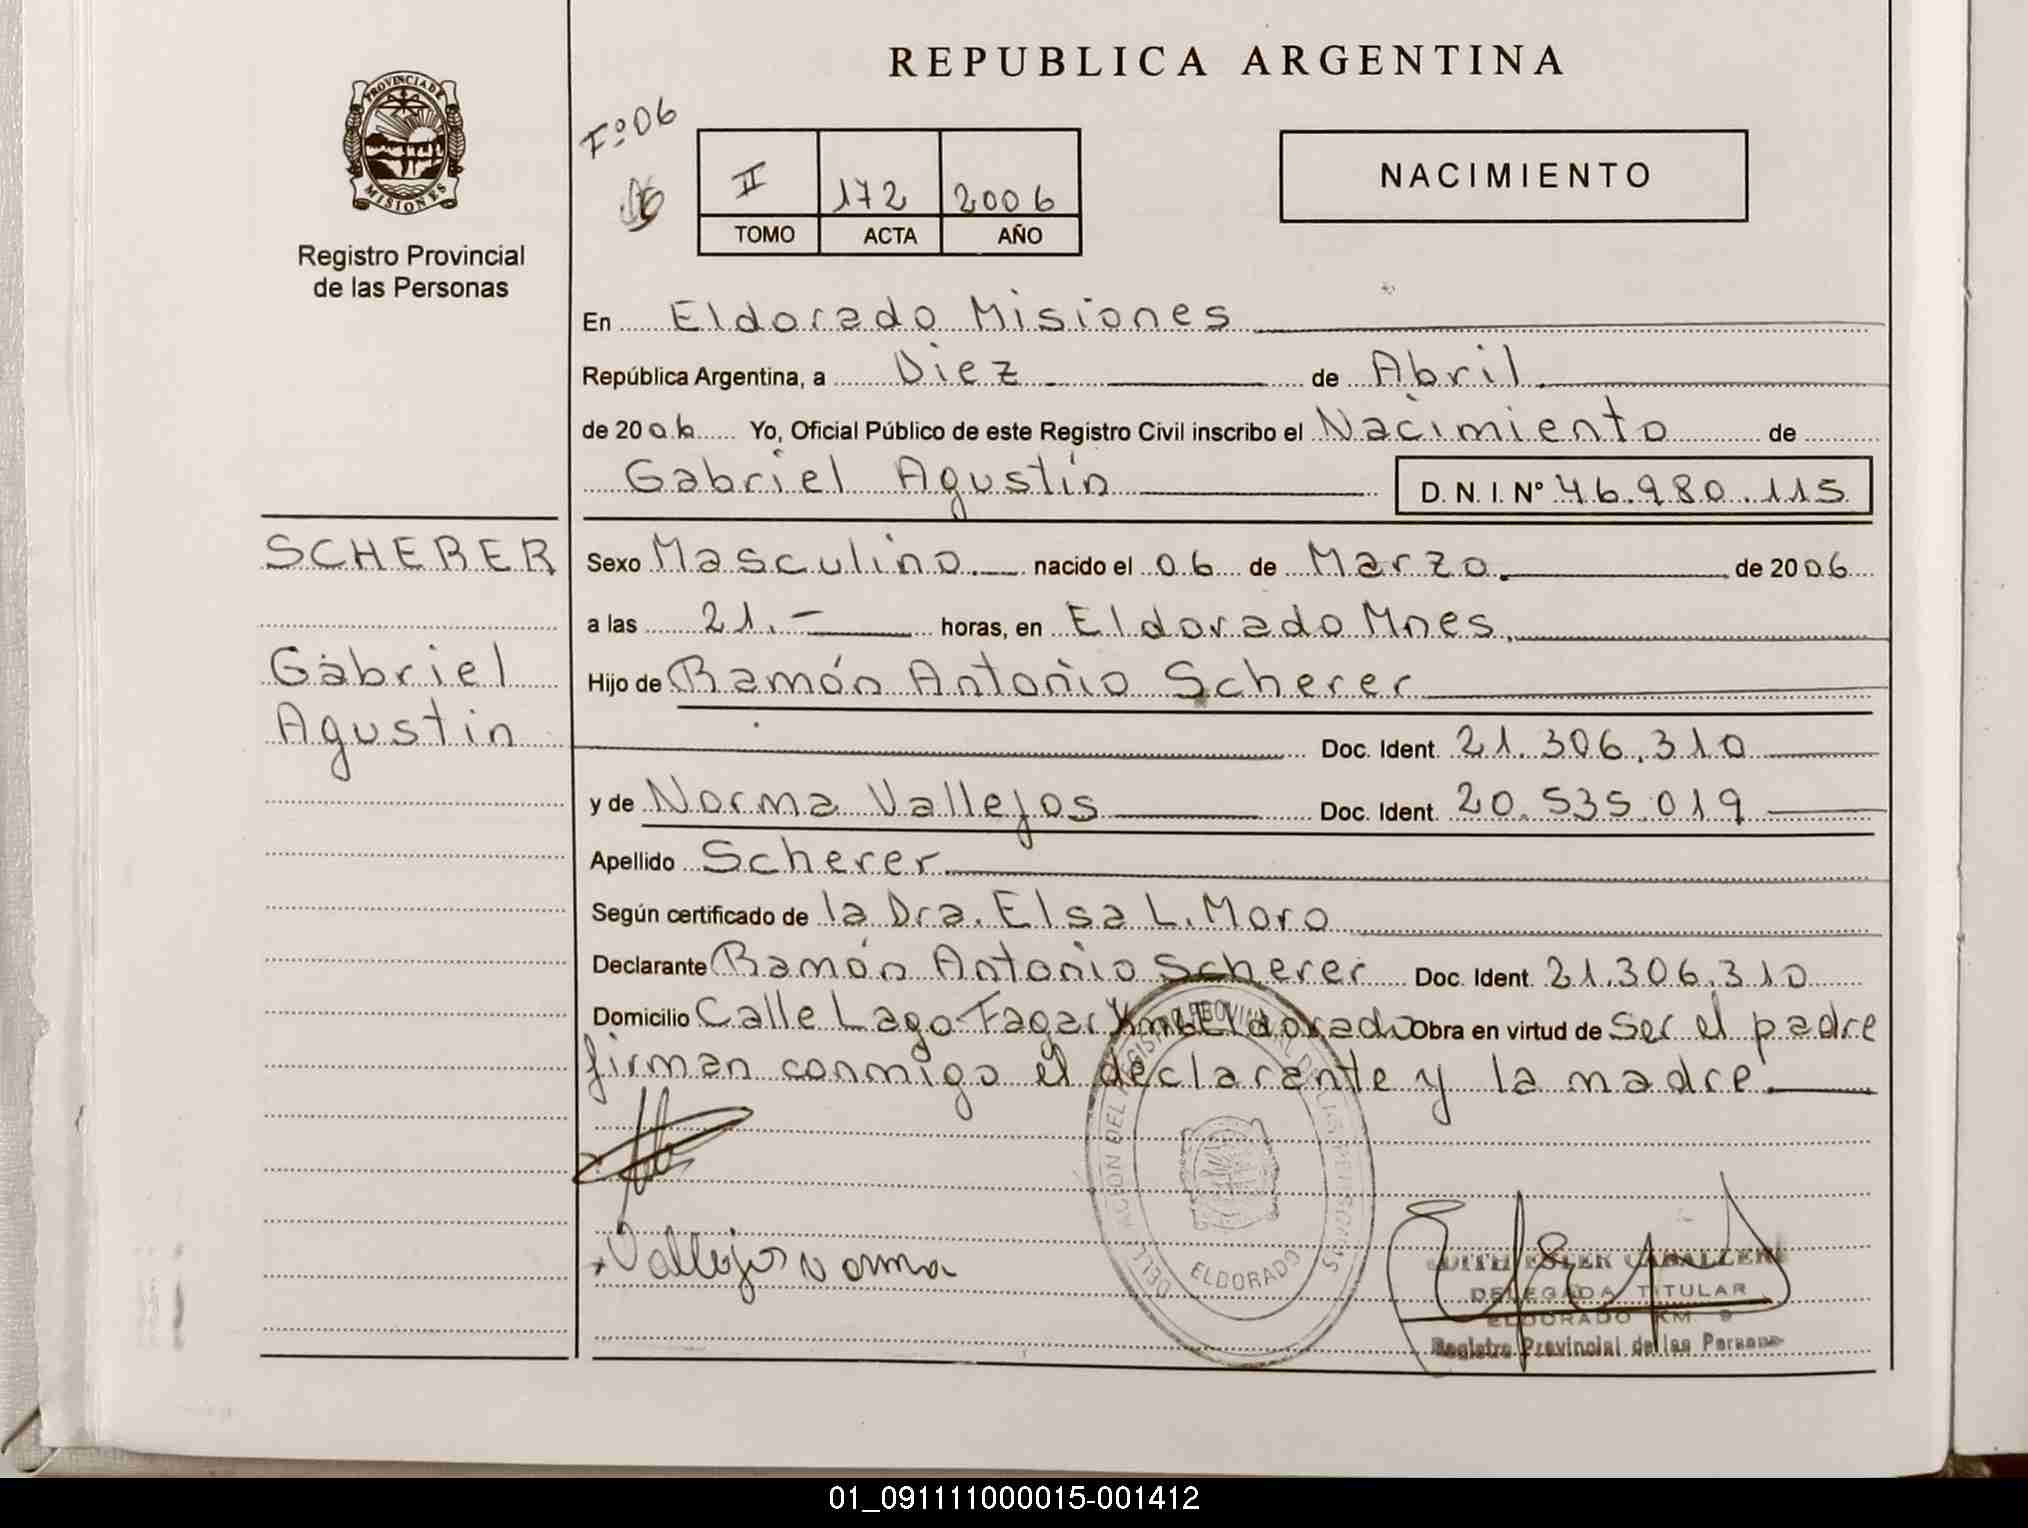 REPUBLICA ARGENTINA
PROVINCIA DE
MISIONES
Registro Provincial
de las Personas
Fº 06
II 172 2006
TOMO ACTA AÑO
NACIMIENTO
En Eldorado Misiones
República Argentina, a Diez de Abril
de 2006 Yo, Oficial Público de este Registro Civil inscribo el Nacimiento de
Gabriel Agustín D. N. I. Nº 46.980.115
SCHERER
Gabriel
Agustin
Sexo Masculino nacido el 06 de Marzo. de 2006
a las 21.- horas, en Eldorado Mnes.
Hijo de Ramón Antonio Scherer
Doc. Ident. 21.306.310
y de Norma Vallejos Doc. Ident. 20.535.019
Apellido Scherer
Según certificado de la Dra. Elsa L. Moro
Declarante Ramón Antonio Scherer Doc. Ident. 21.306.310
Domicilio Calle Lago Eldorado Obra en virtud de ser el padre
firman conmigo el declarante y la madre
DEL REGISTRO PROVINCIAL DE LAS PERSONAS
ELDORADO
Vallejos Norma
EDITH ESTER CABALLERO
DELEGADA TITULAR
ELDORADO KM. 9
Registro Provincial de las Personas
01_091111000015-001412